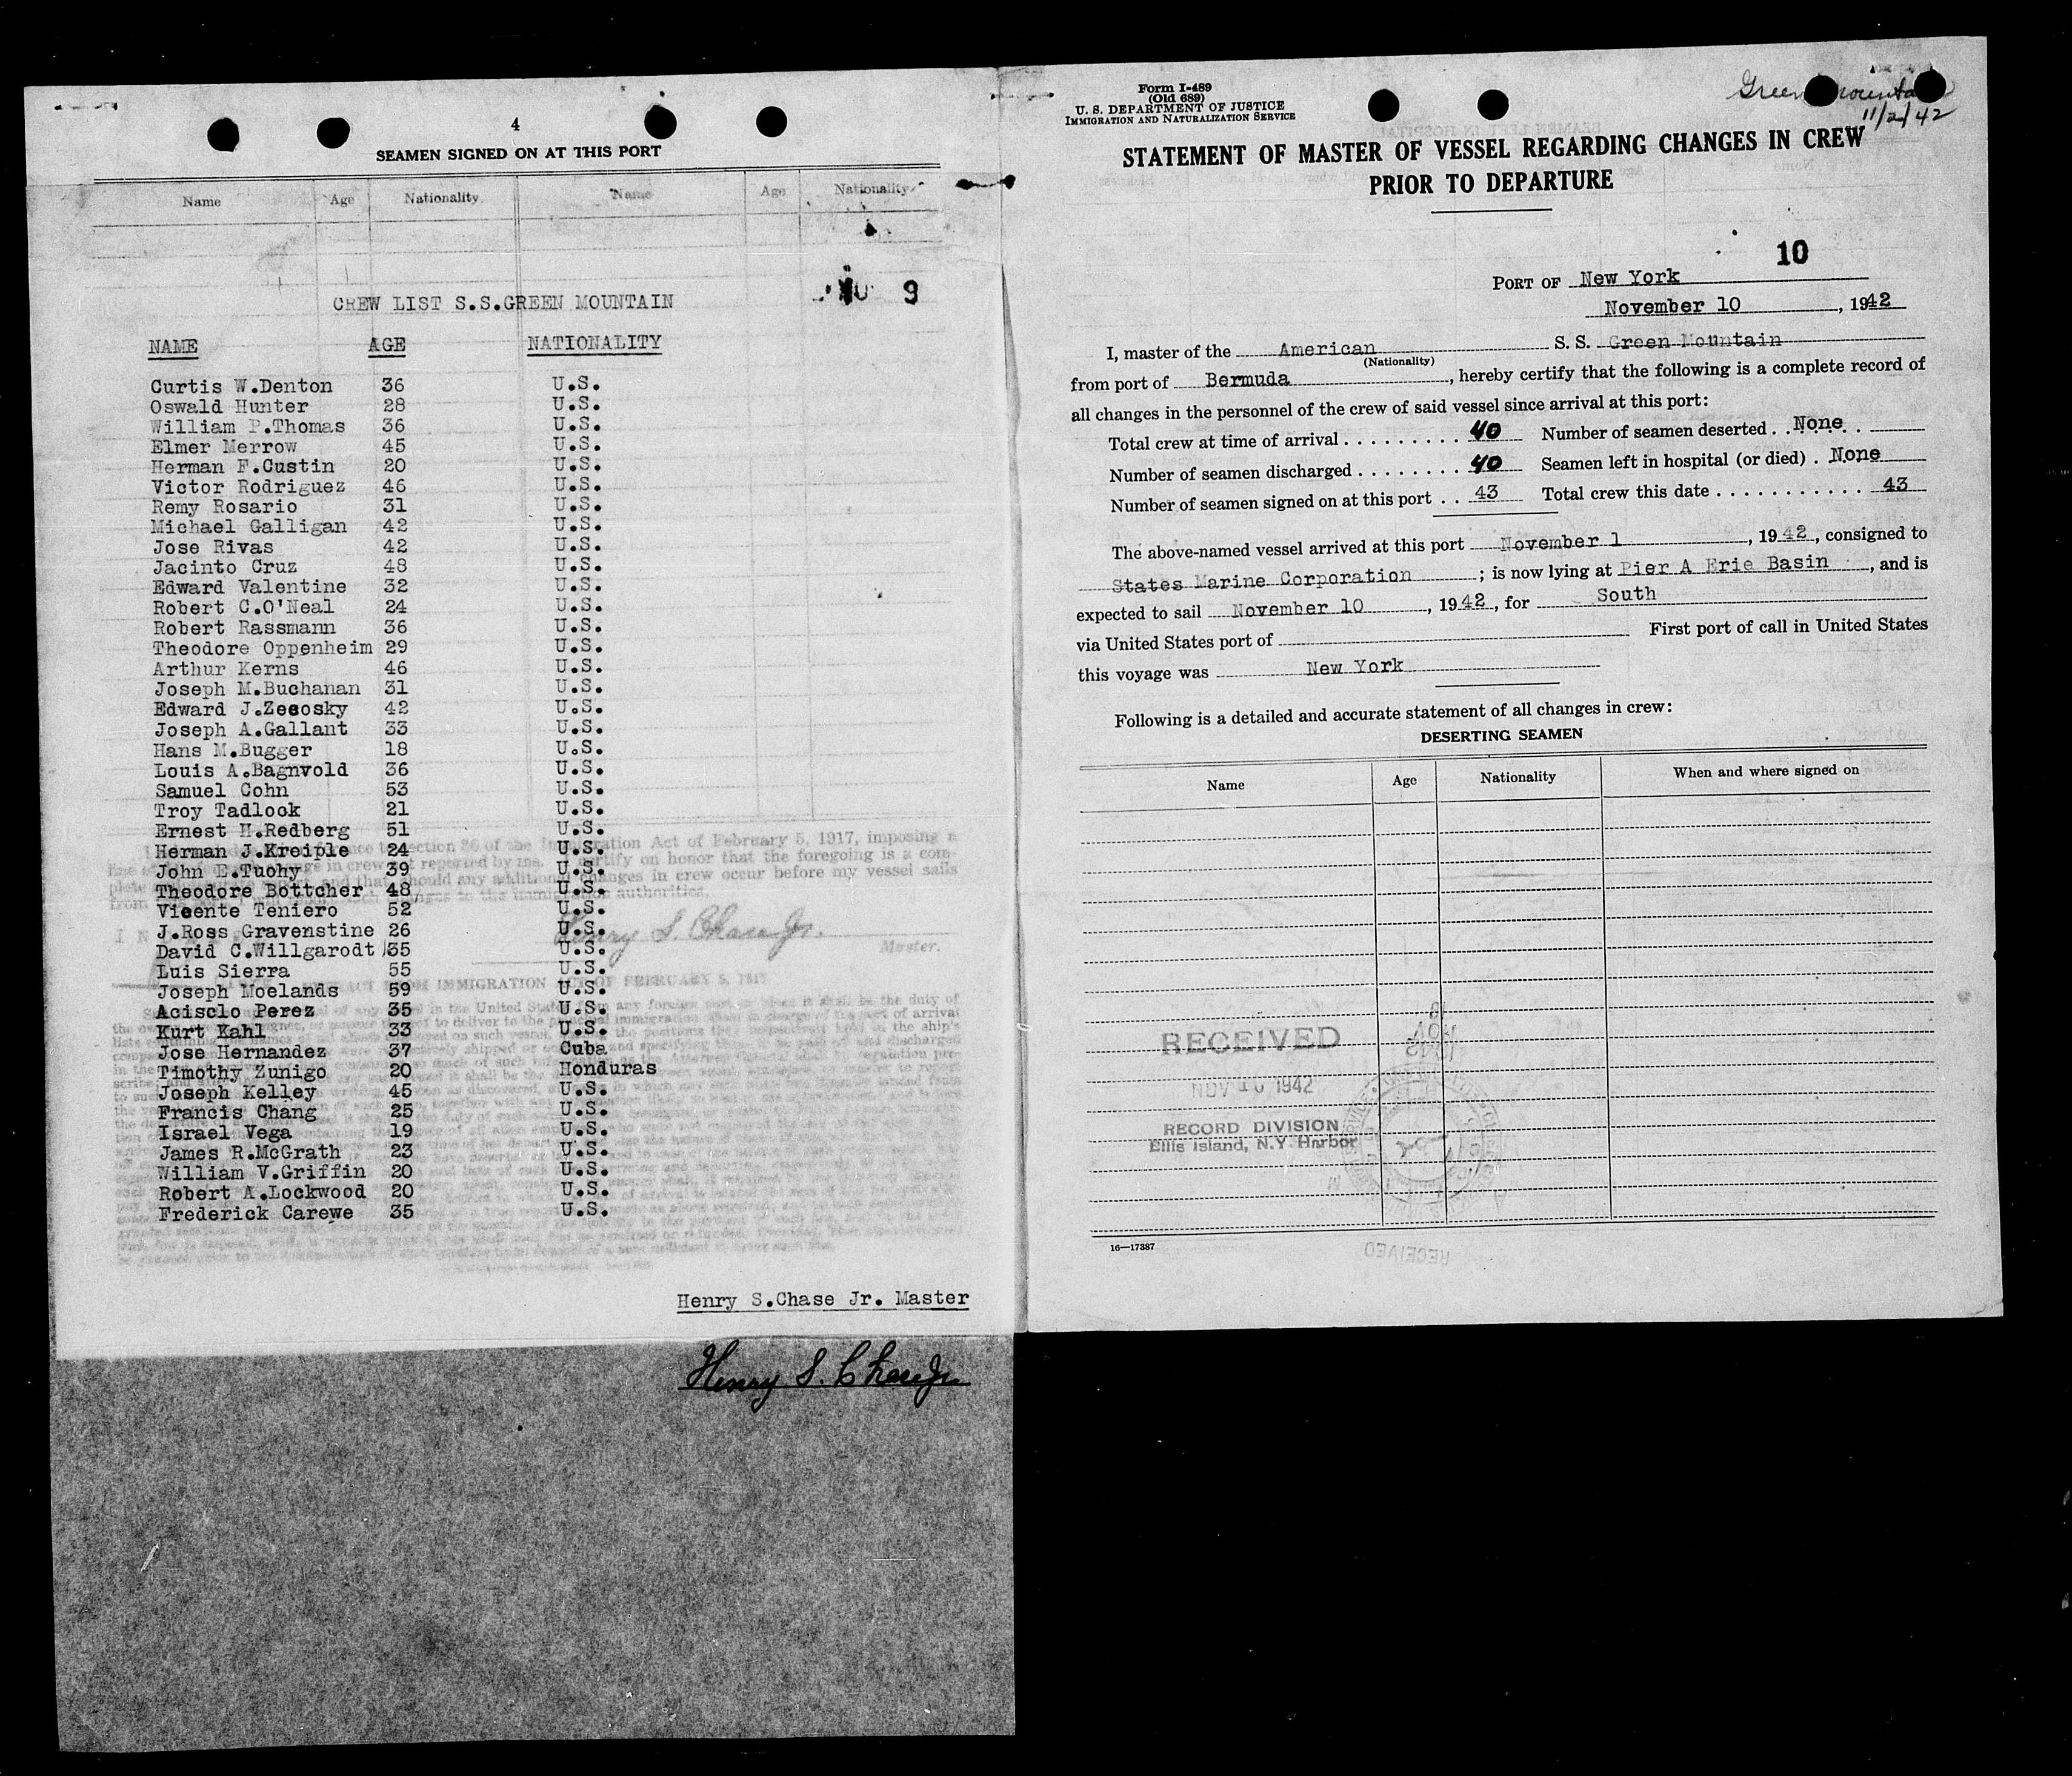 4
SEAMEN SIGNED ON AT THIS PORT
Name Age Nationality Name Age Nationality
9
CREW LIST S.S.GREEN MOUNTAIN
NAME AGE NATIONALITY
Curtis W.Denton 36 U.S.
Oswald Hunter 28 U.S.
William P.Thomas 36 U.S.
Elmer Merrow 45 U.S.
Herman F.Custin 20 U.S.
Victor Rodriguez 46 U.S.
Remy Rosario 31 U.S.
Michael Galligan 42 U.S.
Jose Rivas 42 U.S.
Jacinto Cruz 48 U.S.
Edward Valentine 32 U.S.
Robert C.O'Neal 24 U.S.
Robert Rassmann 36 U.S.
Theodore Oppenheim 29 U.S.
Arthur Kerns 46 U.S.
Joseph M.Buchanan 31 U.S.
Edward J.Zecosky 42 U.S.
Joseph A.Gallant 33 U.S.
Hans M.Bugger 18 U.S.
Louis A.Bagnvold 36 U.S.
Samuel Cohn 53 U.S.
Troy Tadlock 21 U.S.
Ernest H.Redberg 51 U.S.
Herman J.Kreiple 24 U.S.
John E.Tuohy 39 U.S.
Theodore Bottcher 48 U.S.
Vicente Teniero 52 U.S.
J.Ross Gravenstine 26 U.S.
David C.Willgarodt 35 U.S.
Luis Sierra 55 U.S.
Joseph Moelands 59 U.S.
Acisclo Perez 35 U.S.
Kurt Kahl 33 U.S.
Jose Hernandez 37 Cuba
Timothy Zunigo 20 Honduras
Joseph Kelley 45 U.S.
Francis Chang 25 U.S.
Israel Vega 19 U.S.
James R.McGrath 23 U.S.
William V.Griffin 20 U.S.
Robert A.Lockwood 20 U.S.
Frederick Carewe 35 U.S.
Henry S. Chase Jr.
Master.
Henry S.Chase Jr. Master
Henry S. Chase Jr.
Form I-489
(Old 689)
U. S. DEPARTMENT OF JUSTICE
IMMIGRATION AND NATURALIZATION SERVICE
Green Mountain
11/2/42
STATEMENT OF MASTER OF VESSEL REGARDING CHANGES IN CREW
PRIOR TO DEPARTURE
10
PORT OF New York
November 10, 1942
I, master of the American S. S. Green Mountain
(Nationality)
from port of Bermuda, hereby certify that the following is a complete record of
all changes in the personnel of the crew of said vessel since arrival at this port:
Total crew at time of arrival . . . . . . . . . 40 Number of seamen deserted . . None
Number of seamen discharged . . . . . . . . 40 Seamen left in hospital (or died) . None
Number of seamen signed on at this port . . 43 Total crew this date . . . . . . . . . . . . 43
The above-named vessel arrived at this port November 1, 1942, consigned to
States Marine Corporation; is now lying at Pier A Erie Basin, and is
expected to sail November 10, 1942, for South
via United States port of First port of call in United States
this voyage was New York
Following is a detailed and accurate statement of all changes in crew:
DESERTING SEAMEN
Name Age Nationality When and where signed on
RECEIVED
NOV 10 1942
RECORD DIVISION
Ellis Island, N.Y. Harbor
16—17387
RECEIVED